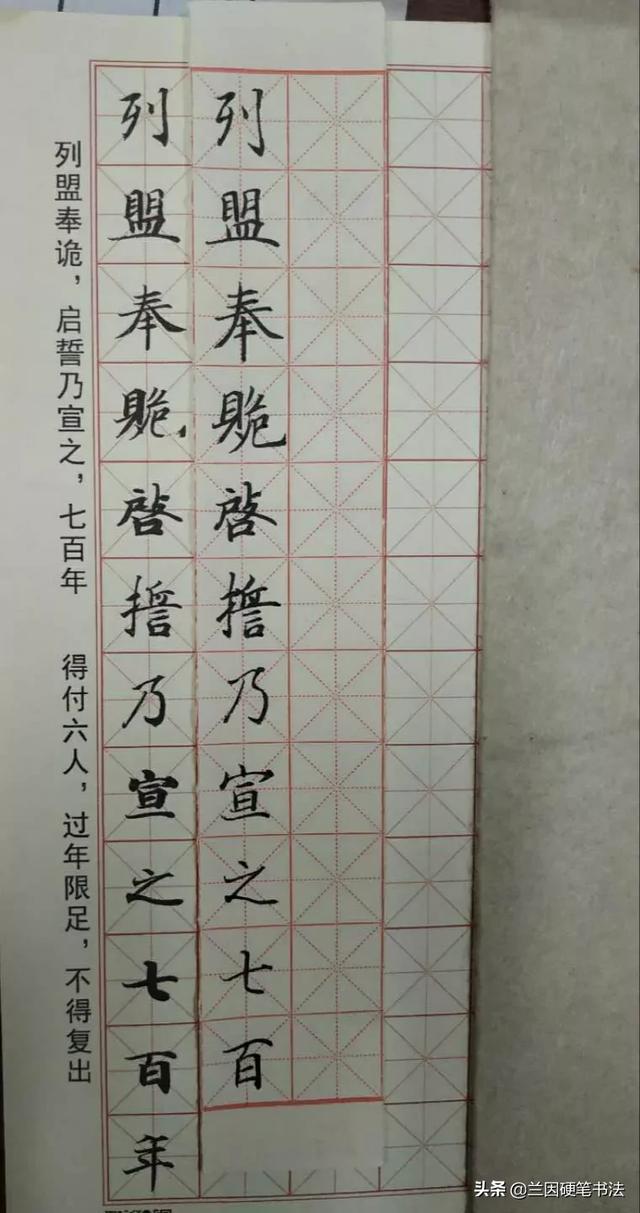 列盟奉啓誓乃宣之七百
列盟奉啓誓乃宣之七百年
列盟奉诡，启誓乃宣之，七百年 得付六人，过年限足，不得复出
头条 @兰因硬笔书法